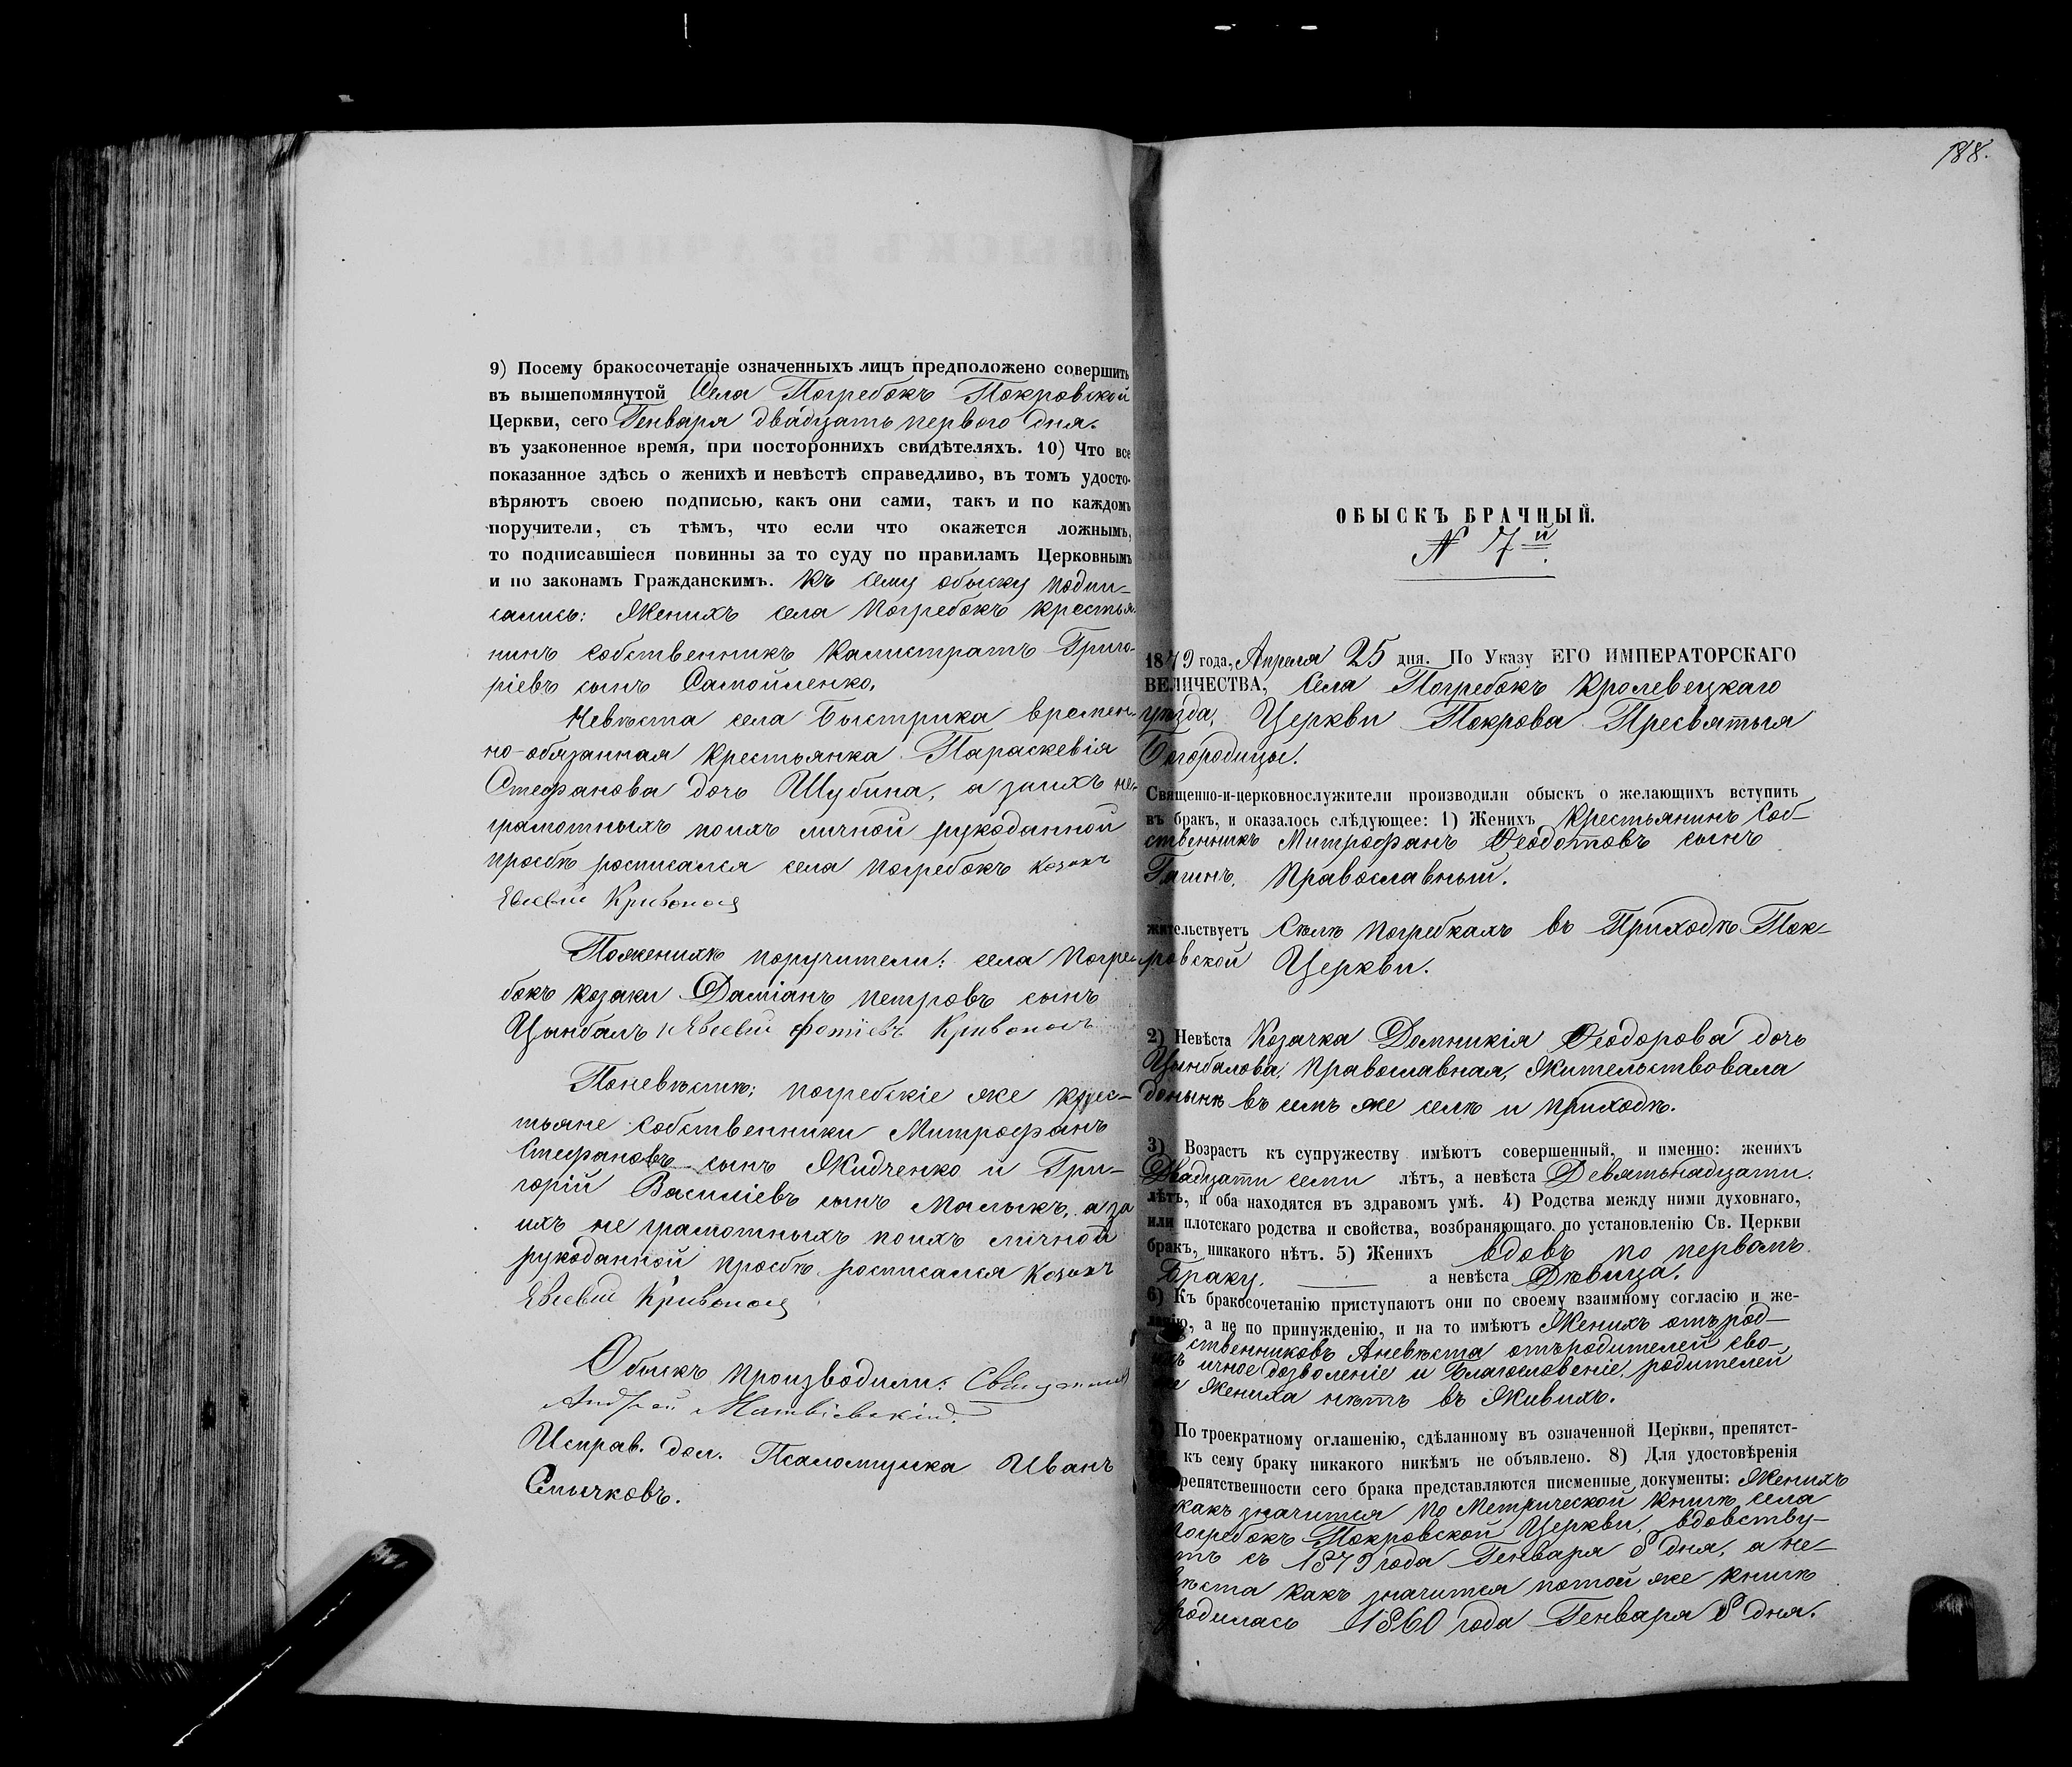 9) Посему бракосочетаніе означенныхъ лицъ предположено совершить
въ вышепомянутой Села Погребокъ Покровской
Церкви, сего Генваря двадцать перваго дня.
въ узаконенное время, при постороннихъ свидѣтеляхъ. 10) Что все
показанное здѣсь о женихѣ и невѣстѣ справедливо, въ томъ удосто-
вѣряютъ своею подписью, какъ они сами, такъ и по каждомъ
поручители, съ тѣмъ, что если что окажется ложнымъ,
то подписавшіеся повинны за то суду по правиламъ Церковнымъ
и по законамъ Гражданскимъ. Къ сему обыску подпи-
сались: Женихъ села Погребокъ крестья-
нинъ собственникъ Калистратъ Григо-
ріевъ сынъ Самойленко.
Невѣста села Быстрика времен-
но-обязанная крестьянка Параскевія
Стефанова дочь Шубина, а заихъ не-
грамотныхъ поихъ личной рукоданной
просбѣ росписался села Погребокъ козакъ
Евсевій Кривонос
Поженихѣ поручители: села Погре-
бокъ козаки Даміанъ Петровъ сынъ
Цынбалъ и Евсевій Фотіевъ Кривонос
Поневѣстѣ: погребскіе же крес-
тьяне собственники Митрофанъ
Стефановъ сынъ Жидченко и Гри-
горій Василіевъ сынъ Малыкъ, а за
ихъ не грамотныхъ поихъ личной
рукоданной просбѣ росписался Козакъ
Евсевій Кривонос
Обыскъ производили: Священникъ
Андрей Матвіевскій.
Исправ. дол. Псаломщика Иванъ
Смычковъ.
188.
ОБЫСКЪ БРАЧНЫЙ.
N 7й.
1879 года, Апреля 25 дня. По Указу ЕГО ИМПЕРАТОРСКАГО
ВЕЛИЧЕСТВА, Села Погребокъ Кролевецкаго
уѣзда, Церкви Покрова Пресвятыя
Богородицы.
Священно-и-церковнослужители производили обыскъ о желающихъ вступить
въ бракъ, и оказалось слѣдующее: 1) Женихъ Крестьянинъ Соб-
ственникъ Митрофанъ Ѳеодотовъ сынъ
Православный.
жительствуетъ Селѣ Погребкахъ въ Приходѣ Пок-
ровской Церкви.
2) Невѣста Козачка Домникія Ѳеодорова дочь
Цынбалова, Православная, Жительствовала
донынѣ въ семъ же селѣ и приходѣ.
3) Возрастъ къ супружеству имѣютъ совершенный, и именно: женихъ
Двадцати семи лѣтъ, а невѣста Девятьнадцати.
лѣтъ, и оба находятся въ здравомъ умѣ. 4) Родства между ними духовнаго,
или плотскаго родства и свойства, возбраняющаго по установленію Св. Церкви
бракъ, никакого нѣтъ. 5) Женихъ вдовъ по первомъ
Браку. а невѣста Дѣвица.
6) Къ бракосочетанію приступаютъ они по своему взаимному согласію и же-
ланію, а не по принужденію, и на то имѣютъ Женихъ отърод-
ственниковъ Аневѣста отъродителей сво-
ихъ ичное дозволеніе и Благословеніе, родителей
же Жениха нѣтъ въ Живихъ.
По троекратному оглашенію, сдѣланному въ означенной Церкви, препятст-
къ сему браку никакого никѣмъ не объявлено. 8) Для удостовѣренія
репятственности сего брака представляются писменные документы: Женихъ
какъ значится по Метрической книгѣ села
Погребокъ Покровской Церкви, вдовству-
тъ съ 1879 года Генваря 8 дня, а не-
вѣста какъ значится потой же книгѣ
родилась 1860 года Генваря 8 дня.